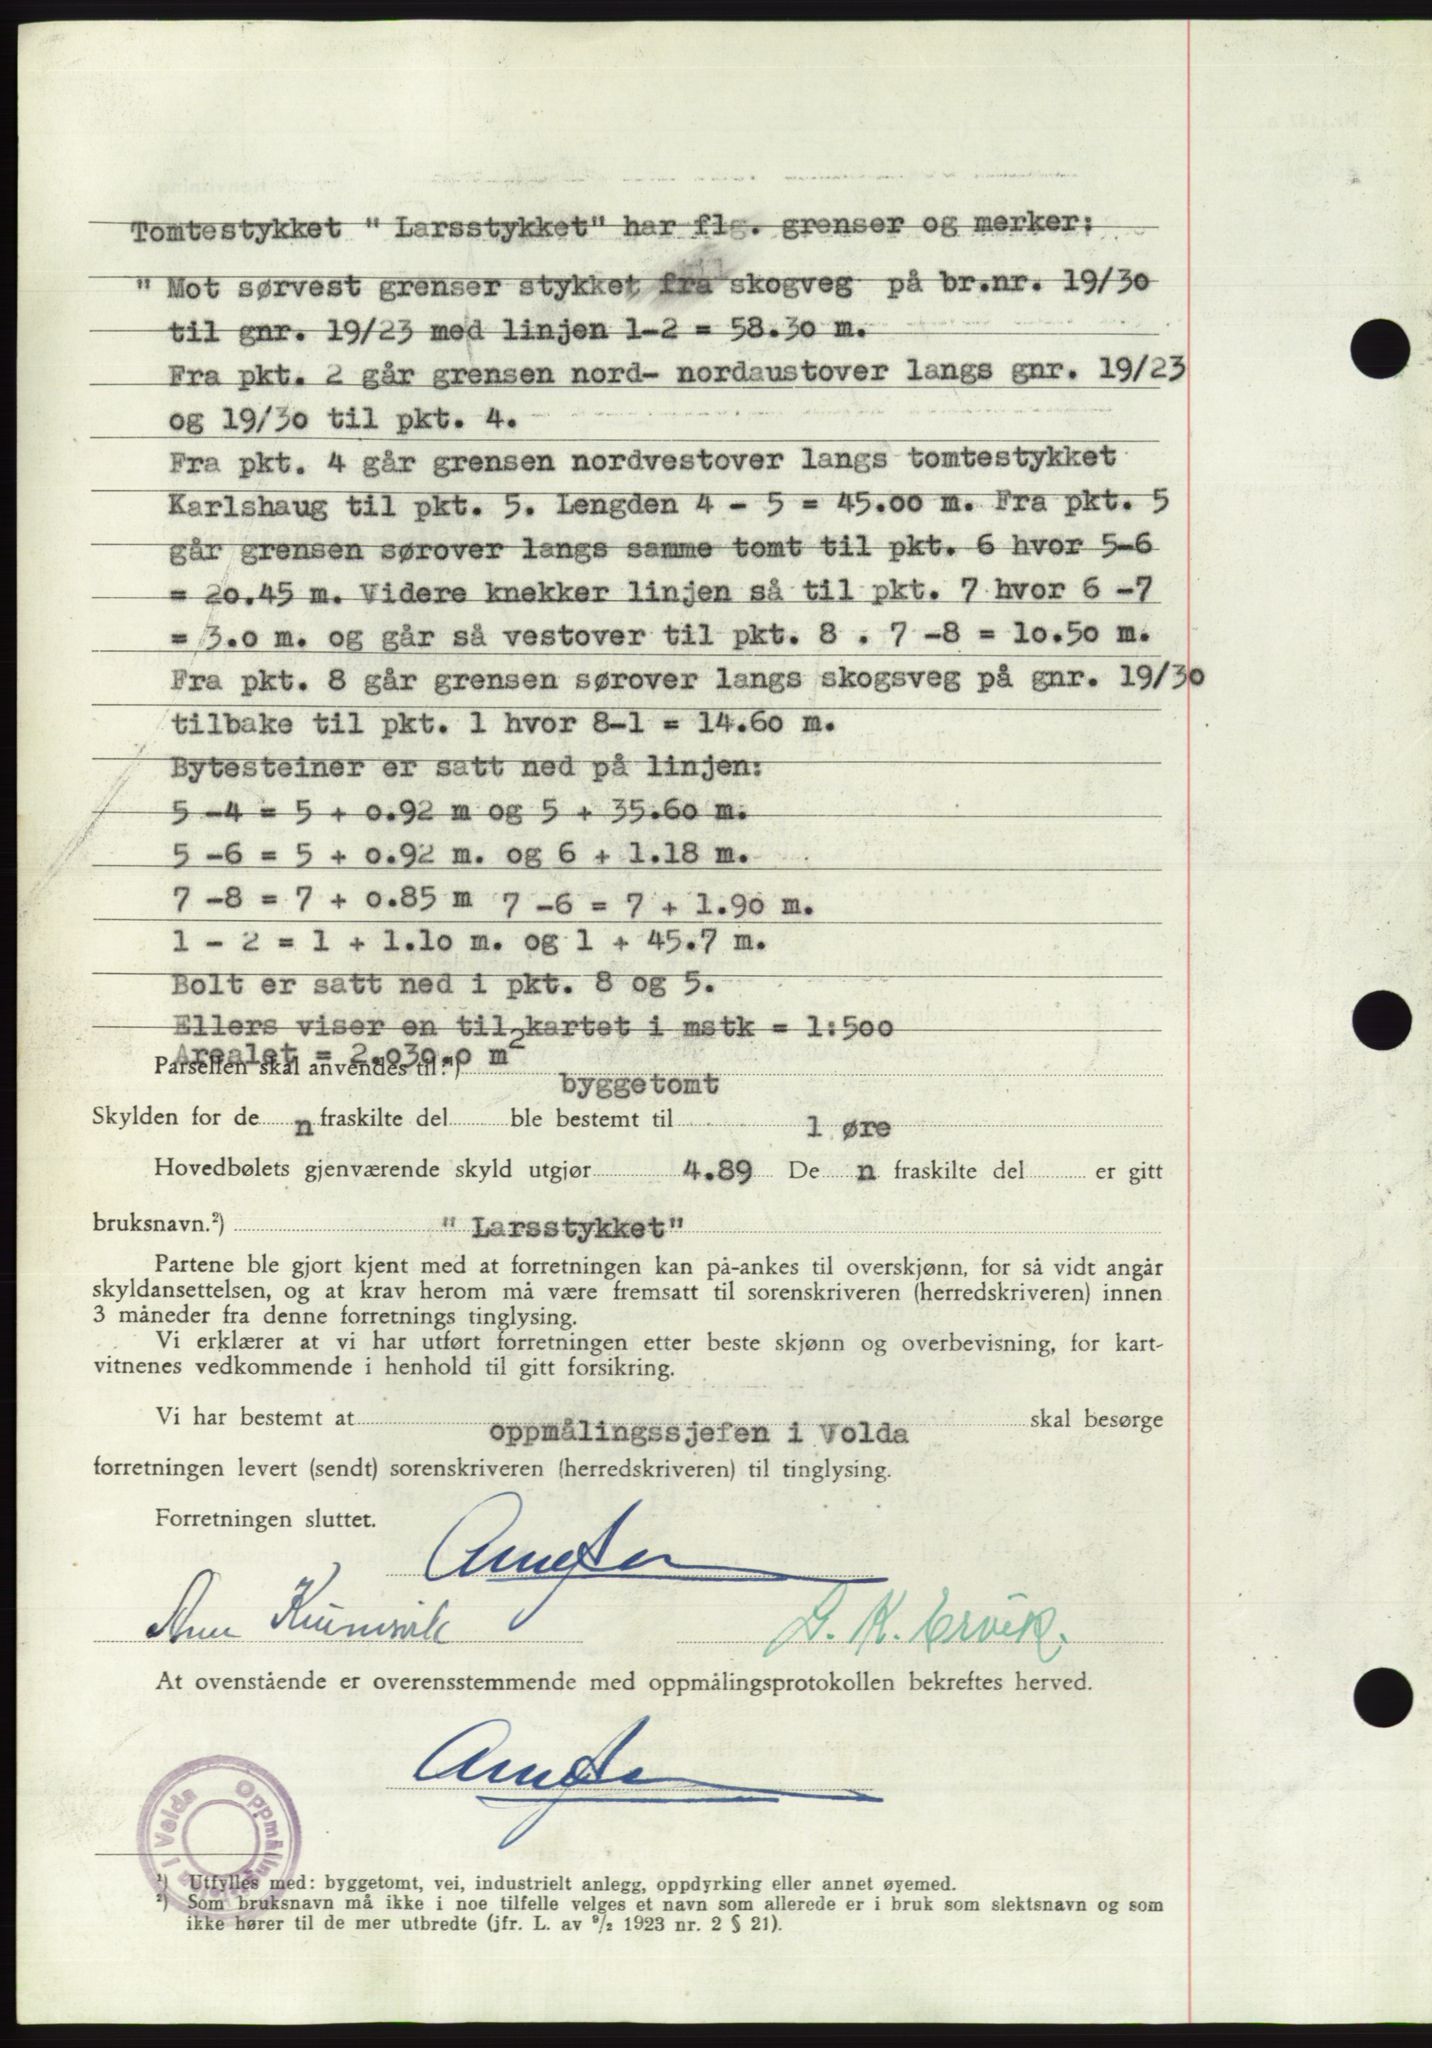 Tomtestykket " Larsstykket" har flg. grenser og merker:
" Mot sørvest grenser stykket fra skogveg på br.nr. 19/30
til gnr. 19/23 med linjen 1-2 = 58.30 m.
Fra pkt. 2 går grensen nord- nordaustover langs gnr. 19/23
og 19/30 til pkt. 4.
Fra pkt. 4 går grensen nordvestover langs tomtestykket
Karlshaug til pkt. 5. Lengden 4 - 5 = 45.00 m. Fra pkt. 5
går grensen sørover langs samme tomt til pkt. 6 hvor 5-6
= 20.45 m. Videre knekker linjen så til pkt. 7 hvor 6 -7
= 3.0 m. og går så vestover til pkt. 8 . 7 -8 = 10.50 m.
Fra pkt. 8 går grensen sørover langs skogsveg på gnr. 19/30
tilbake til pkt. 1 hvor 8-1 = 14.60 m.
Bytesteiner er satt ned på linjen:
5 -4 = 5 + 0.92 m og 5 + 35.60 m.
5 -6 = 5 + 0.92 m. og 6 + 1.18 m.
7 -8 = 7 + 0.85 m 7 -6 = 7 + 1.90 m.
1 - 2 = 1 + 1.10 m. og 1 + 45.7 m.
Bolt er satt ned i pkt. 8 og 5.
Ellers viser en til kartet i mstk = 1:500
Arealet = 2.030.0 m2
Parsellen skal anvendes til:¹) byggetomt
Skylden for de n fraskilte del ble bestemt til 1 øre
Hovedbølets gjenværende skyld utgjør 4.89 De n fraskilte del er gitt
bruksnavn.²) " Larsstykket"
Partene ble gjort kjent med at forretningen kan på-ankes til overskjønn, for så vidt angår
skyldansettelsen, og at krav herom må være fremsatt til sorenskriveren (herredskriveren) innen
3 måneder fra denne forretnings tinglysing.
Vi erklærer at vi har utført forretningen etter beste skjønn og overbevisning, for kart-
vitnenes vedkommende i henhold til gitt forsikring.
Vi har bestemt at oppmålingssjefen i Volda skal besørge
forretningen levert (sendt) sorenskriveren (herredskriveren) til tinglysing.
Forretningen sluttet.
G. K. Ervik.
At ovenstående er overensstemmende med oppmålingsprotokollen bekreftes herved.
Oppmålingssjefen i Volda
¹) Utfylles med: byggetomt, vei, industrielt anlegg, oppdyrking eller annet øyemed.
²) Som bruksnavn må ikke i noe tilfelle velges et navn som allerede er i bruk som slektsnavn og som
ikke hører til de mer utbredte (jfr. L. av 9/2 1923 nr. 2 § 21).